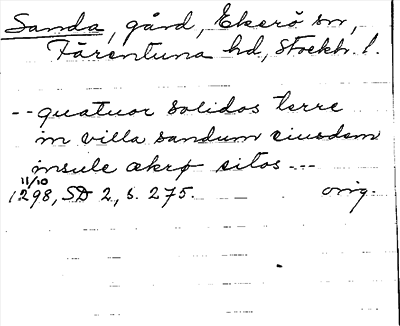 Sanda, gård, Ekerö sn,
Färentuna hd, Stockh. l.
-- quatuor solidos terre
in villa sandum eiusdem
insule ækrø sitos ---
11/10
1298, SD 2, s. 275. orig.